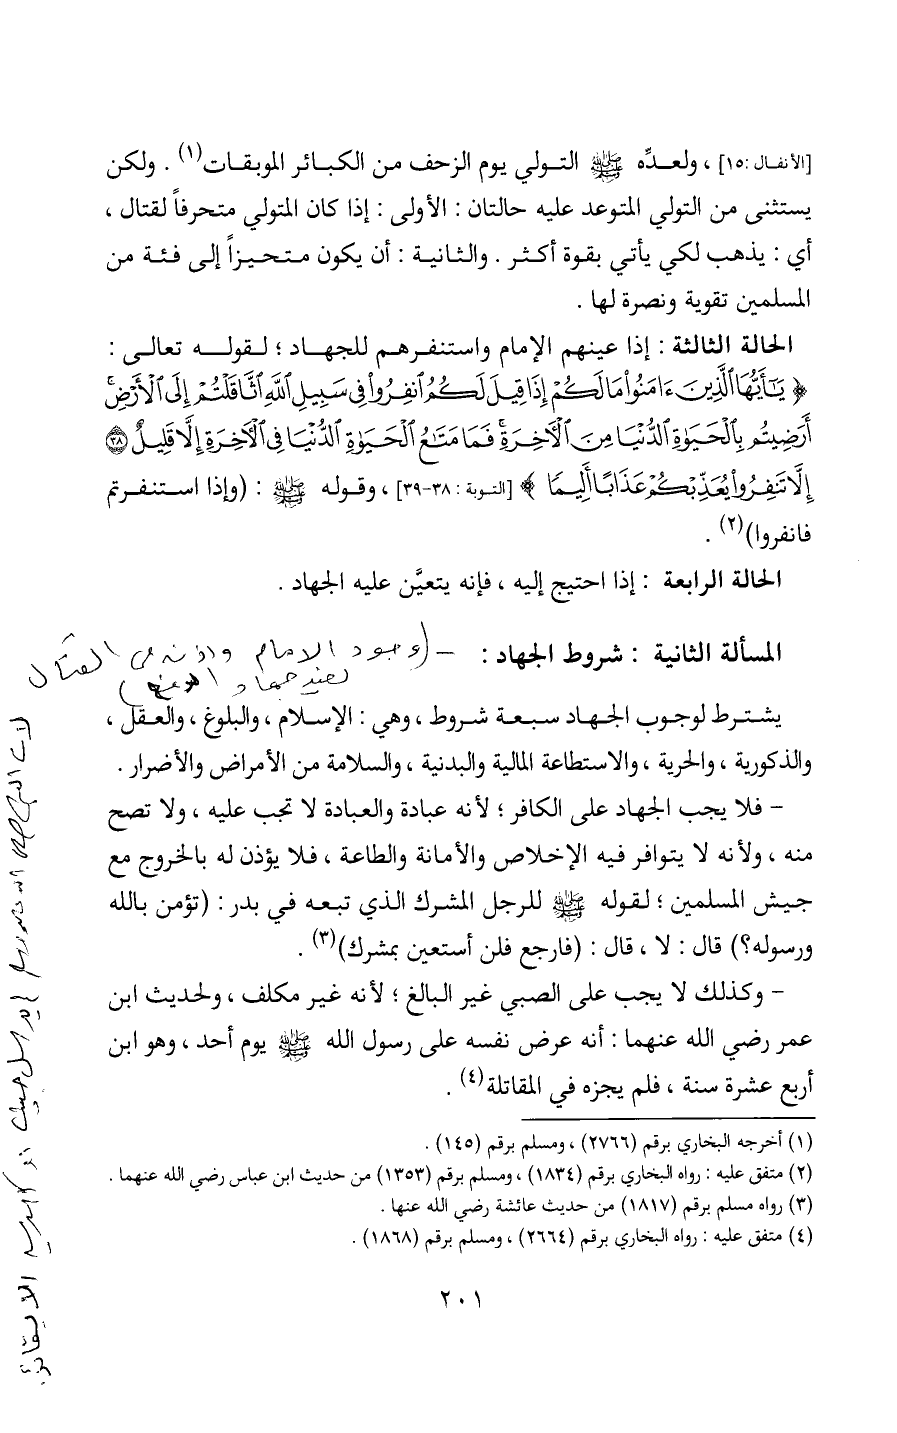 [الأنفال :١٥] ، ولعدِّه ﷺ التولي يوم الزحف من الكبائر الموبقات(١) . ولكن
يستثنى من التولي المتوعد عليه حالتان : الأولى : إذا كان المتولي متحرفاً لقتال ،
أي : يذهب لكي يأتي بقوة أكثر . والثانية : أن يكون متحيزاً إلى فئة من
المسلمين تقوية ونصرة لها .
الحالة الثالثة : إذا عينهم الإمام واستنفرهم للجهاد ؛ لقوله تعالى :
﴿ يَـٰٓأَيُّهَا ٱلَّذِينَ ءَامَنُوا۟ مَا لَكُمْ إِذَا قِيلَ لَكُمُ ٱنفِرُوا۟ فِى سَبِيلِ ٱللَّهِ ٱثَّاقَلْتُمْ إِلَى ٱلْأَرْضِ ۚ
أَرَضِيتُم بِٱلْحَيَوٰةِ ٱلدُّنْيَا مِنَ ٱلْـَٔاخِرَةِ ۚ فَمَا مَتَـٰعُ ٱلْحَيَوٰةِ ٱلدُّنْيَا فِى ٱلْـَٔاخِرَةِ إِلَّا قَلِيلٌ ٣٨
إِلَّا تَنفِرُوا۟ يُعَذِّبْكُمْ عَذَابًا أَلِيمًا ﴾ [التوبة : ٣٨-٣٩] ، وقوله ﷺ : (وإذا استنفرتم
فانفروا)(٢) .
الحالة الرابعة : إذا احتيج إليه ، فإنه يتعيَّن عليه الجهاد .
المسألة الثانية : شروط الجهاد : – (وجود الامام واذنه في القتال
يشترط لوجوب الجهاد سبعة شروط ، وهي : الإسلام ، والبلوغ ، والعقل ،
والذكورية ، والحرية ، والاستطاعة المالية والبدنية ، والسلامة من الأمراض والأضرار .
– فلا يجب الجهاد على الكافر ؛ لأنه عبادة والعبادة لا تجب عليه ، ولا تصح
منه ، ولأنه لا يتوافر فيه الإخلاص والأمانة والطاعة ، فلا يؤذن له بالخروج مع
جيش المسلمين ؛ لقوله ﷺ للرجل المشرك الذي تبعه في بدر : (تؤمن بالله
ورسوله؟) قال : لا ، قال : (فارجع فلن أستعين بمشرك)(٣) .
– وكذلك لا يجب على الصبي غير البالغ ؛ لأنه غير مكلف ، ولحديث ابن
عمر رضي الله عنهما : أنه عرض نفسه على رسول الله ﷺ يوم أحد ، وهو ابن
أربع عشرة سنة ، فلم يجزه في المقاتلة(٤) .
(١) أخرجه البخاري برقم (٢٧٦٦) ، ومسلم برقم (١٤٥) .
(٢) متفق عليه : رواه البخاري برقم (١٨٣٤) ، ومسلم برقم (١٣٥٣) من حديث ابن عباس رضي الله عنهما .
(٣) رواه مسلم برقم (١٨١٧) من حديث عائشة رضي الله عنها .
(٤) متفق عليه : رواه البخاري برقم (٢٦٦٤) ، ومسلم برقم (١٨٦٨) .
٢٠١